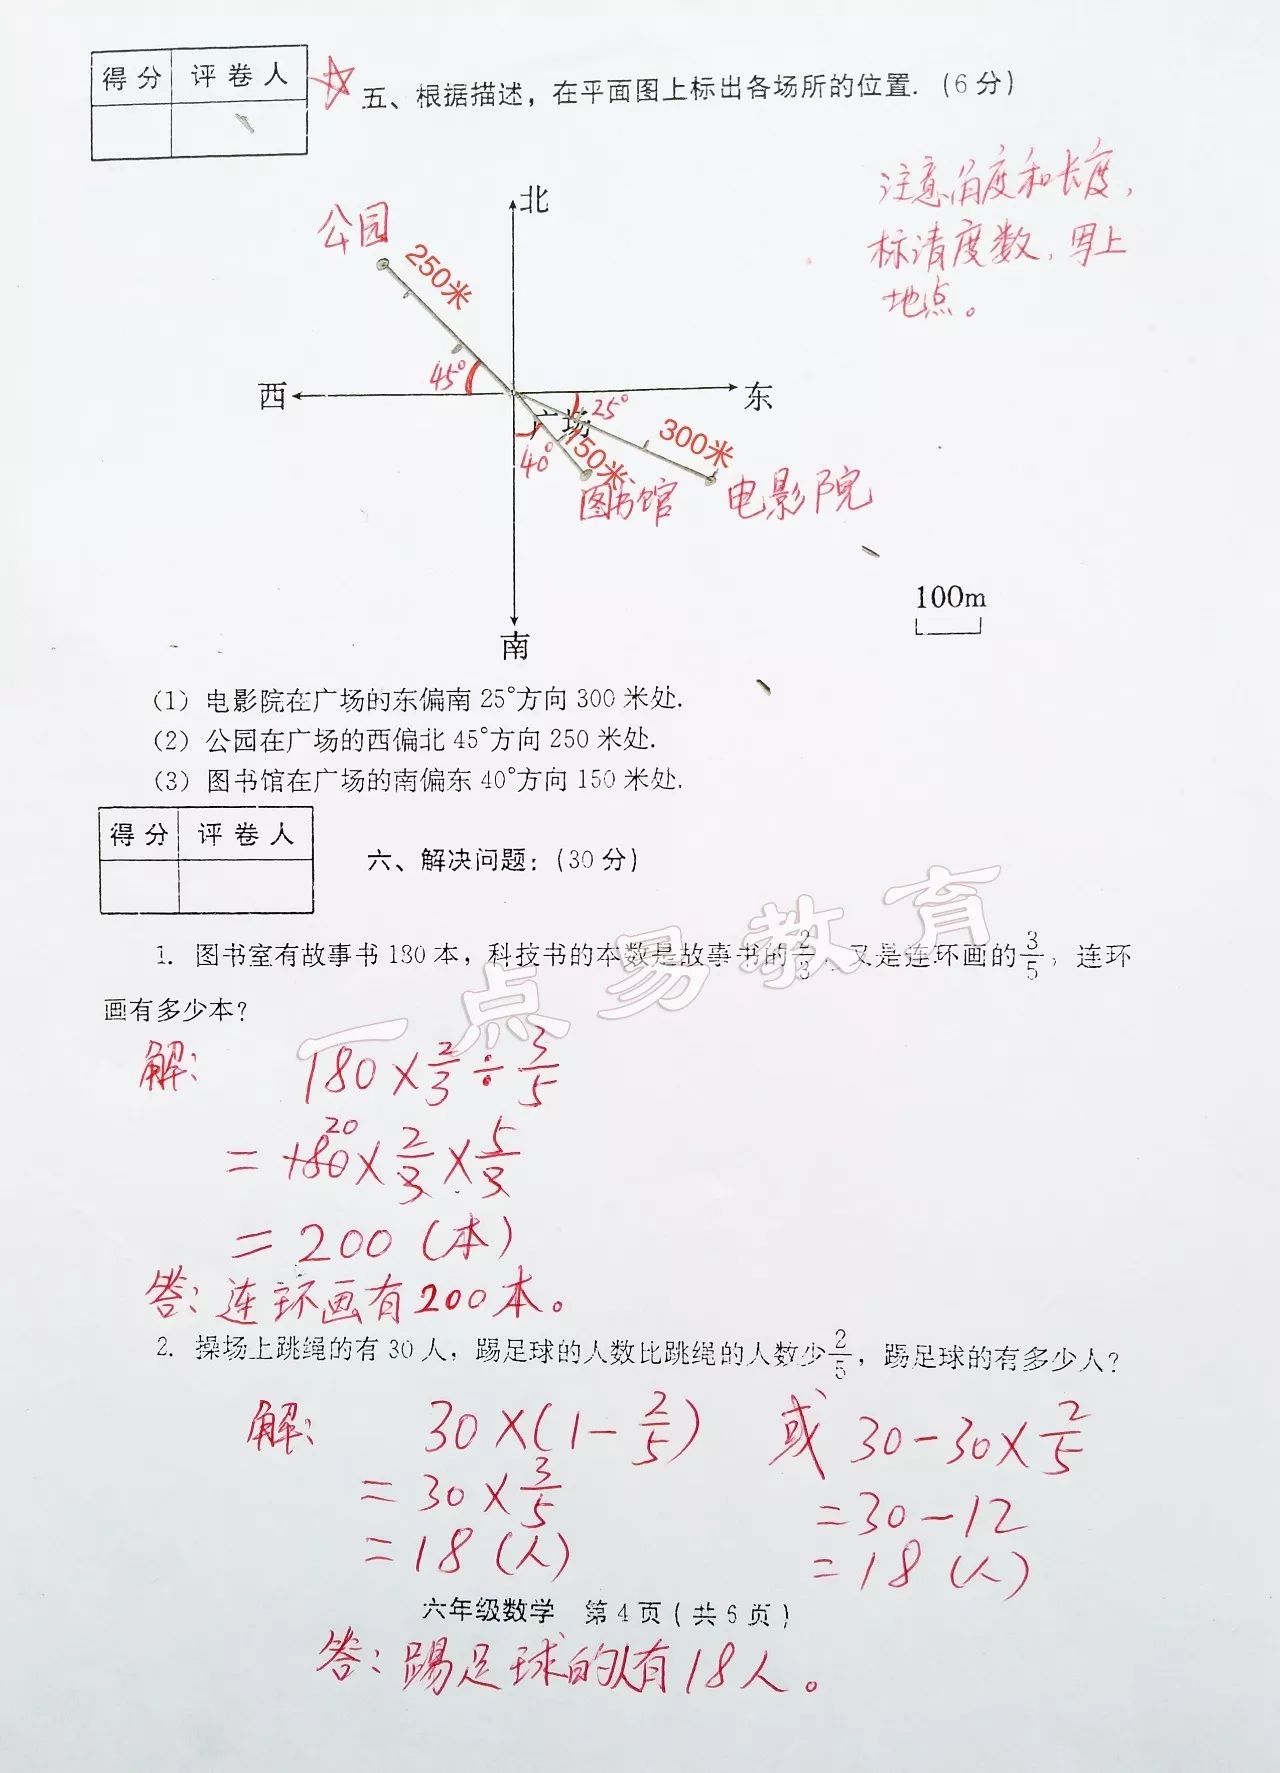 得分 评卷人
五、根据描述，在平面图上标出各场所的位置.(6分)
注意角度和长度，
标清度数，写上
地点。
北
公园
250米
45°
西
东
广场
25°
300米
150米
40°
图书馆
电影院
100m
南
(1) 电影院在广场的东偏南25°方向300米处.
(2) 公园在广场的西偏北45°方向250米处.
(3) 图书馆在广场的南偏东40°方向150米处.
得分 评卷人
六、解决问题:(30分)
一点易教育
1. 图书室有故事书180本，科技书的本数是故事书的2/3，又是连环画的3/5，连环
画有多少本?
解: 180×2/3÷3/5
=180×2/3×5/3
20
=200(本)
答:连环画有200本。
2. 操场上跳绳的有30人，踢足球的人数比跳绳的人数少2/5，踢足球的有多少人?
解: 30×(1-2/5) 或 30-30×2/5
=30×3/5 =30-12
=18(人) =18(人)
六年级数学 第4页(共6页)
答:踢足球的人有18人。